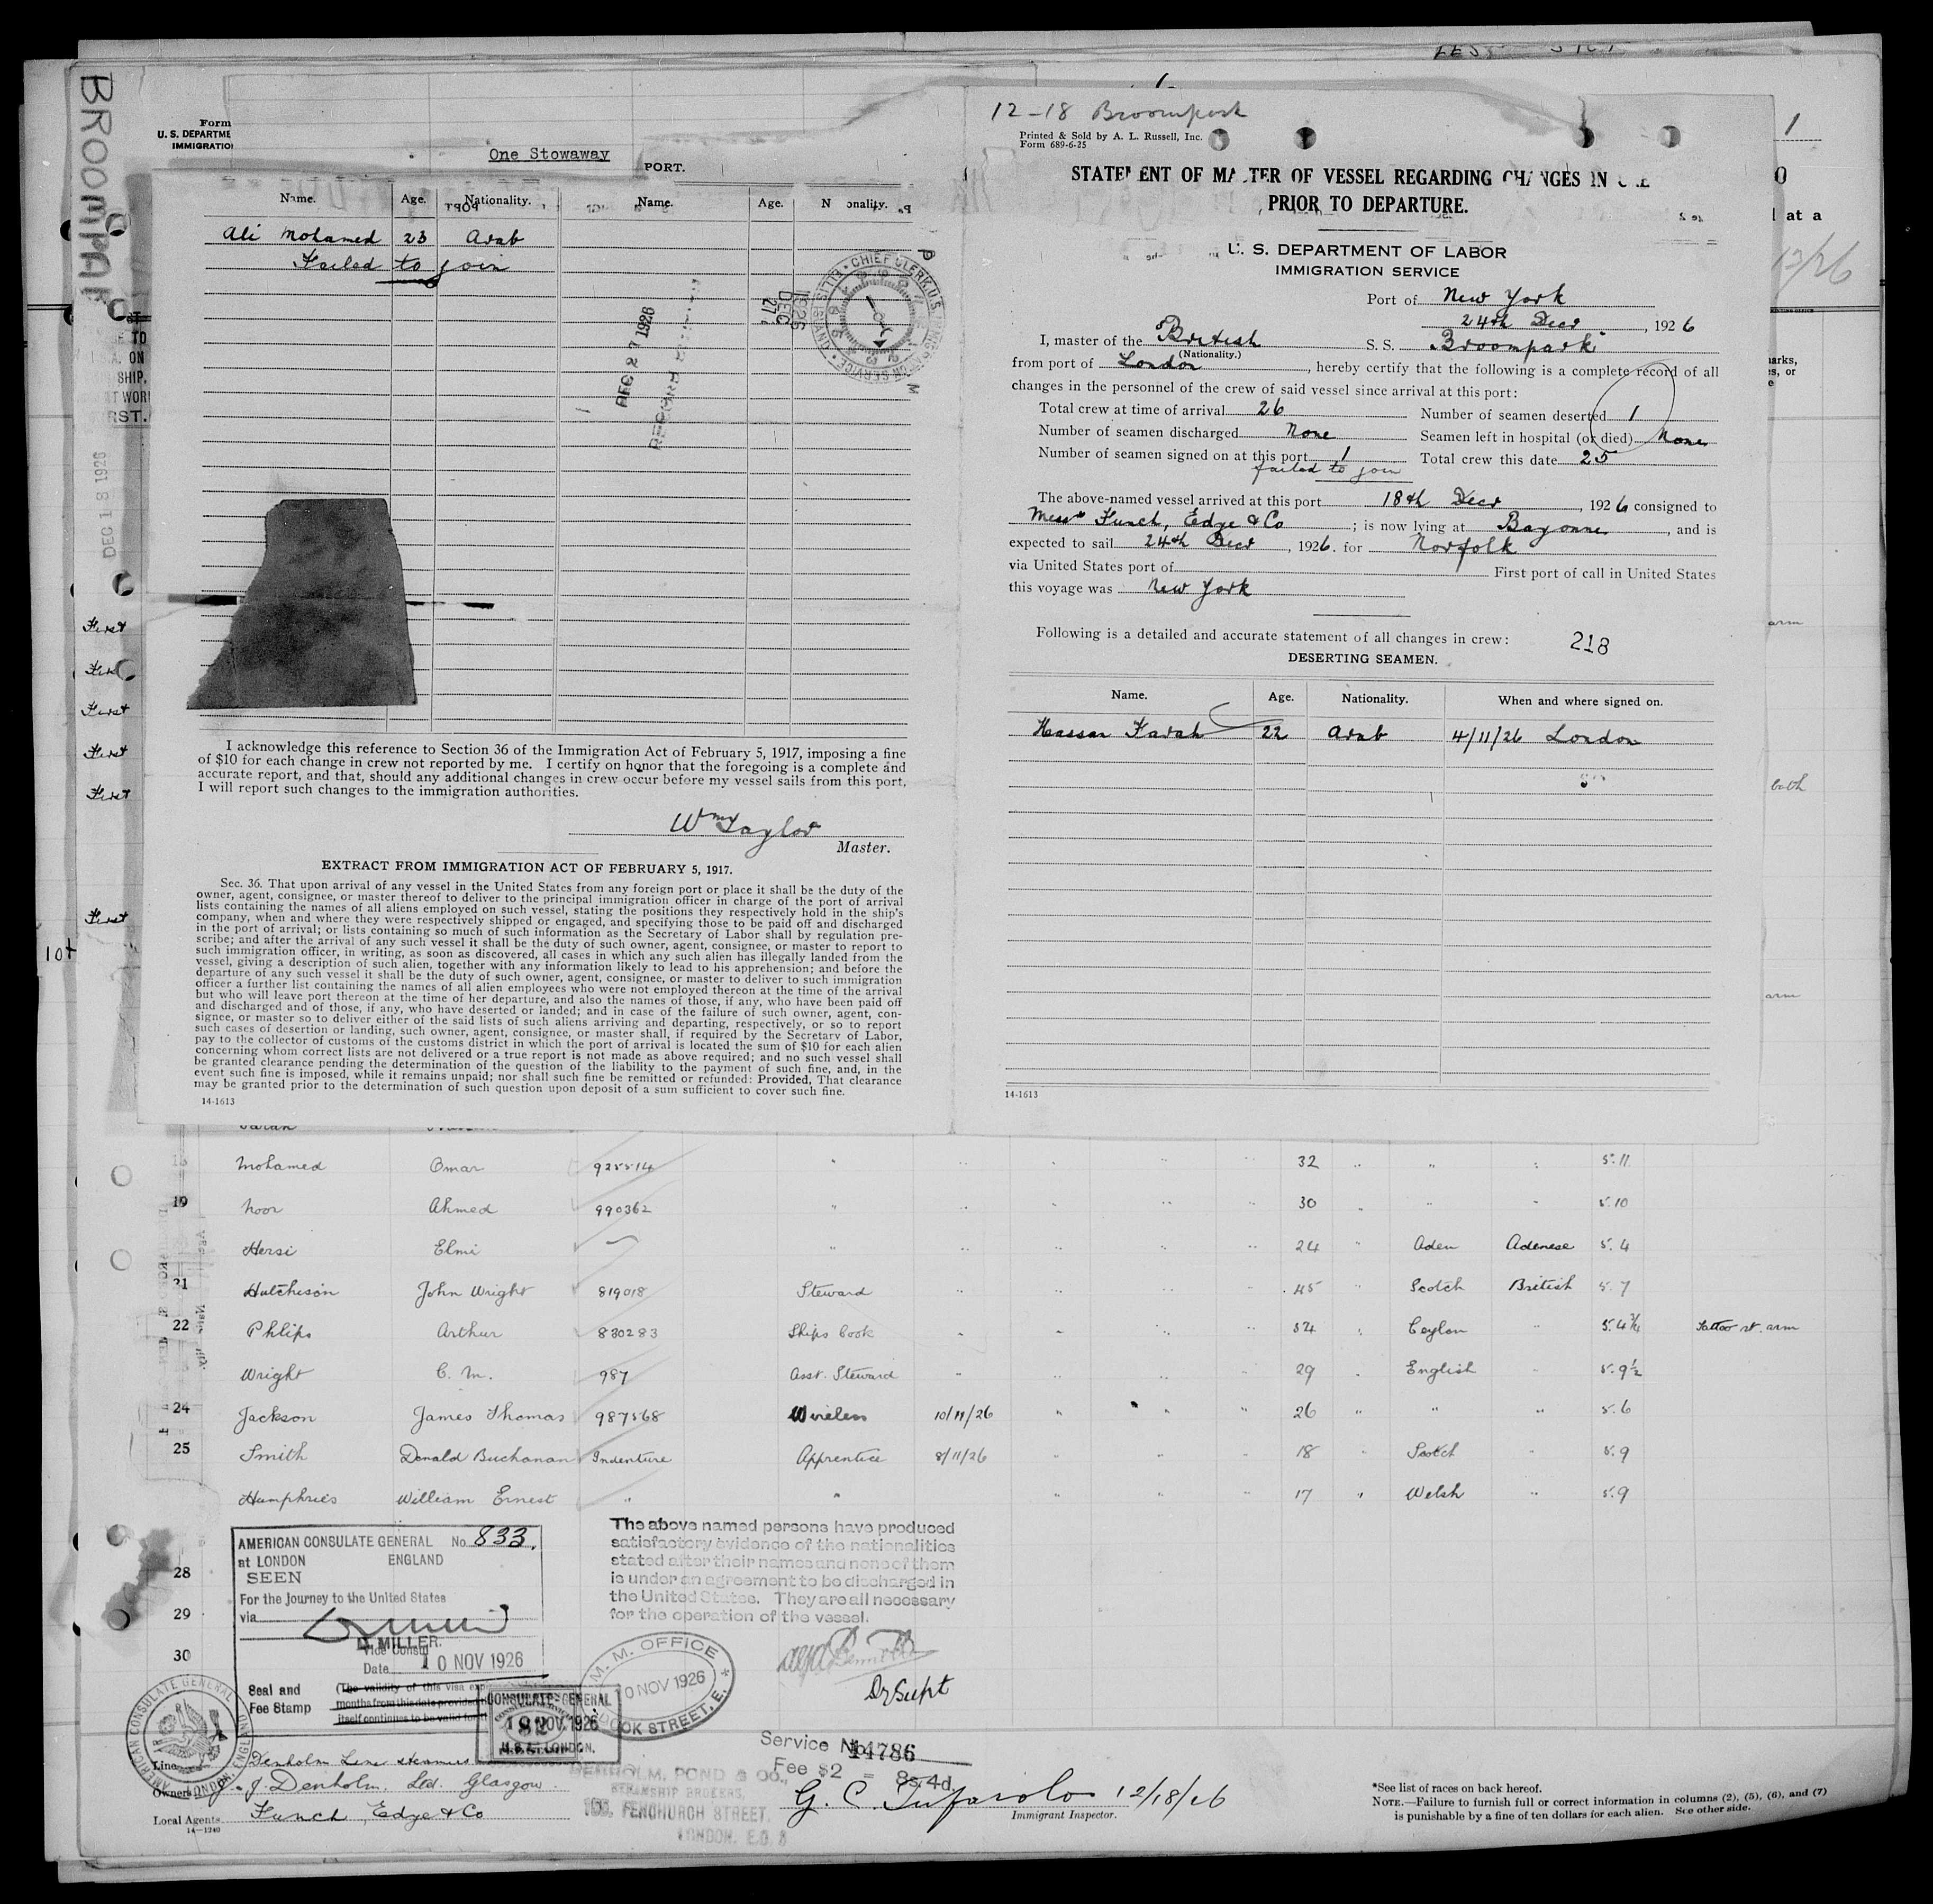 BROOMPARK
Form
U. S. DEPARTME
IMMIGRATIO
One Stowaway
PORT.
Name. Age. Nationality. Name. Age. Nationality.
Ali Mohamed 23 Arab
Failed to join
DEC 27 1926
DEC 27 1926
CHIEF CLERK, U.S. IMMIGRATION SERVICE ELLIS ISLAND
DEC 18 1926
First
First
First
First
First
First
I acknowledge this reference to Section 36 of the Immigration Act of February 5, 1917, imposing a fine
of $10 for each change in crew not reported by me. I certify on honor that the foregoing is a complete and
accurate report, and that, should any additional changes in crew occur before my vessel sails from this port,
I will report such changes to the immigration authorities.
Wm Taylor
Master.
EXTRACT FROM IMMIGRATION ACT OF FEBRUARY 5, 1917.
Sec. 36. That upon arrival of any vessel in the United States from any foreign port or place it shall be the duty of the
owner, agent, consignee, or master thereof to deliver to the principal immigration officer in charge of the port of arrival
lists containing the names of all aliens employed on such vessel, stating the positions they respectively hold in the ship's
company, when and where they were respectively shipped or engaged, and specifying those to be paid off and discharged
in the port of arrival; or lists containing so much of such information as the Secretary of Labor shall by regulation pre-
scribe; and after the arrival of any such vessel it shall be the duty of such owner, agent, consignee, or master to report to
such immigration officer, in writing, as soon as discovered, all cases in which any such alien has illegally landed from the
vessel, giving a description of such alien, together with any information likely to lead to his apprehension; and before the
departure of any such vessel it shall be the duty of such owner, agent, consignee, or master to deliver to such immigration
officer a further list containing the names of all alien employees who were not employed thereon at the time of the arrival
but who will leave port thereon at the time of her departure, and also the names of those, if any, who have been paid off
and discharged and of those, if any, who have deserted or landed; and in case of the failure of such owner, agent, con-
signee, or master so to deliver either of the said lists of such aliens arriving and departing, respectively, or so to report
such cases of desertion or landing, such owner, agent, consignee, or master shall, if required by the Secretary of Labor,
pay to the collector of customs of the customs district in which the port of arrival is located the sum of $10 for each alien
concerning whom correct lists are not delivered or a true report is not made as above required; and no such vessel shall
be granted clearance pending the determination of the question of the liability to the payment of such fine, and, in the
event such fine is imposed, while it remains unpaid; nor shall such fine be remitted or refunded: Provided, That clearance
may be granted prior to the determination of such question upon deposit of a sum sufficient to cover such fine.
14-1613
12-18 Broompark
Printed & Sold by A. L. Russell, Inc.
Form 689-6-25
STATEMENT OF MASTER OF VESSEL REGARDING CHANGES IN CREW
PRIOR TO DEPARTURE.
U. S. DEPARTMENT OF LABOR
IMMIGRATION SERVICE
Port of New York
24th Decr, 1926
I, master of the British S. S. Broompark
(Nationality.)
from port of London, hereby certify that the following is a complete record of all
changes in the personnel of the crew of said vessel since arrival at this port:
Total crew at time of arrival 26 Number of seamen deserted 1
Number of seamen discharged None Seamen left in hospital (or died) None
Number of seamen signed on at this port 1 Total crew this date 25
failed to join
The above-named vessel arrived at this port 18th Decr, 1926 consigned to
Messrs Funch, Edge & Co; is now lying at Bayonne, and is
expected to sail 24th Decr, 1926. for Norfolk
via United States port of First port of call in United States
this voyage was New York
Following is a detailed and accurate statement of all changes in crew: 218
DESERTING SEAMEN.
Name. Age. Nationality. When and where signed on.
Hassan Farah 22 Arab 4/11/26 London
14-1613
Mohamed Omar 925514 " 32 " " 5.11
19 Noor Ahmed 990362 " 30 " " 5.10
Hersi Elmi " 24 " Aden Adenese 5.4
21 Hutchison John Wright 819018 Steward " 45 " Scotch British 5.7
22 Phlips Arthur 830283 Ships Cook " 54 " Ceylon " 5.4¾ Tattoo rt. arm
Wright C. M. 987 Asst. Steward " 29 " English " 5.9½
24 Jackson James Thomas 987568 Wireless 10/11/26 " 26 " " " 5.6
25 Smith Donald Buchanan Indenture Apprentice 8/11/26 " 18 " Scotch " 5.9
Humphries William Ernest " " " 17 " Welsh " 5.9
28
29
30
AMERICAN CONSULATE GENERAL No. 833.
at LONDON ENGLAND
SEEN
For the Journey to the United States
via
D. MILLER.
Vice Consul
Date 10 NOV 1926
Seal and
Fee Stamp
(The validity of this visa exp
months from this date provided
itself continues to be valid for
CONSULATE GENERAL
10 NOV. 1926
U.S.A. LONDON.
AMERICAN CONSULATE GENERAL LONDON, ENGLAND
The above named persons have produced
satisfactory evidence of the nationalities
stated after their names and none of them
is under an agreement to be discharged in
the United States. They are all necessary
for the operation of the vessel.
M. M. OFFICE
10 NOV 1926
DOCK STREET, E.
Dy Supt
Service No. 14786
Fee $2 = 8s. 4d.
Line Denholm Line Steamers
Owners J. Denholm Ltd. Glasgow
Local Agents Funch, Edge & Co
14-1240
DENHOLM, POND & CO.,
STEAMSHIP BROKERS,
FENCHURCH STREET,
LONDON, E.C. 3
G. C. Tufarolo 12/18/26
Immigrant Inspector.
*See list of races on back hereof.
NOTE.—Failure to furnish full or correct information in columns (2), (5), (6), and (7)
is punishable by a fine of ten dollars for each alien. See other side.